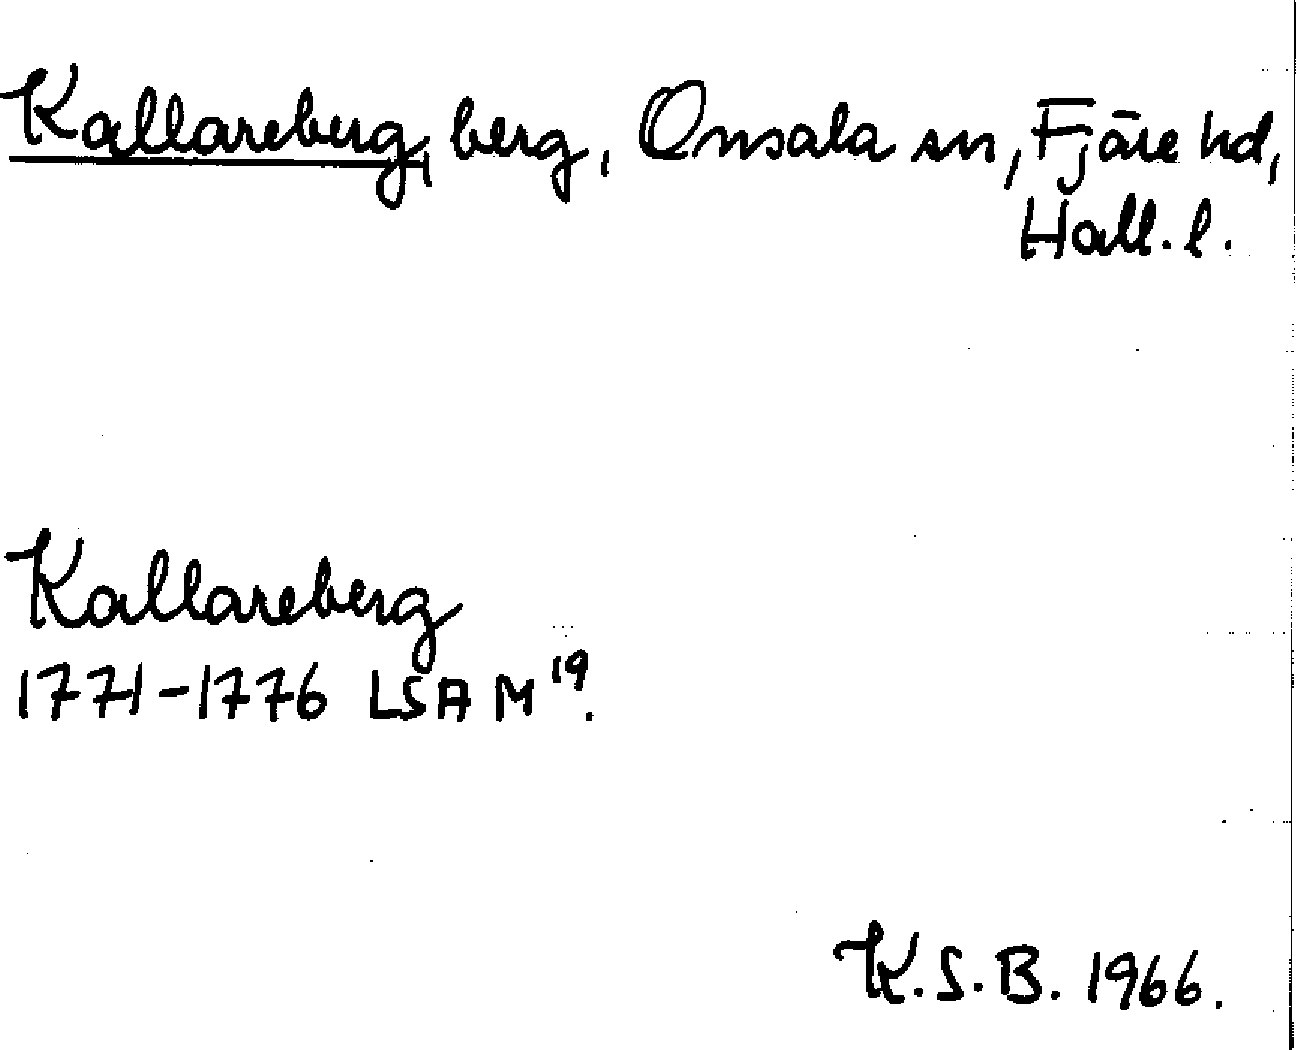 Kallareberg, berg, Onsala sn, Fjäre hd,
Hall. l.
Kallareberg
1771-1776 LSA M 19.
K.S.B. 1966.